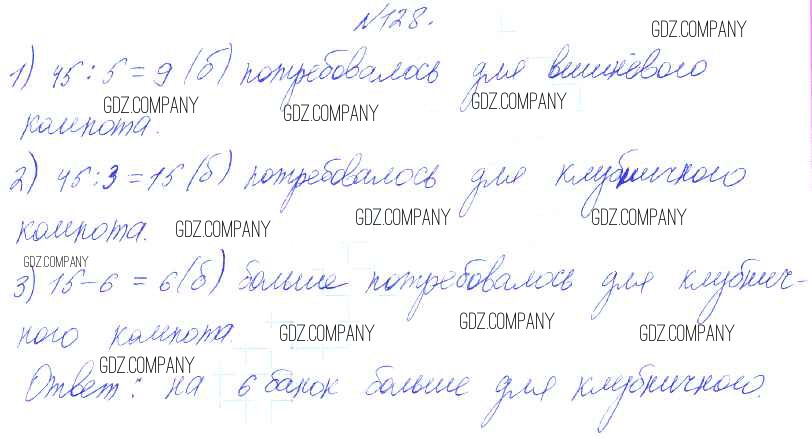 №128.
GDZ.COMPANY
1) 45 : 5 = 9 (б) потребовалось для вишнёвого
GDZ.COMPANY GDZ.COMPANY GDZ.COMPANY
компота.
2) 45 : 3 = 15 (б) потребовалось для клубничного
GDZ.COMPANY GDZ.COMPANY
компота. GDZ.COMPANY
GDZ.COMPANY
3) 15 - 6 = 6 (б) больше потребовалось для клубнич-
ного компота. GDZ.COMPANY GDZ.COMPANY GDZ.COMPANY
GDZ.COMPANY
Ответ: на 6 банок больше для клубничного.